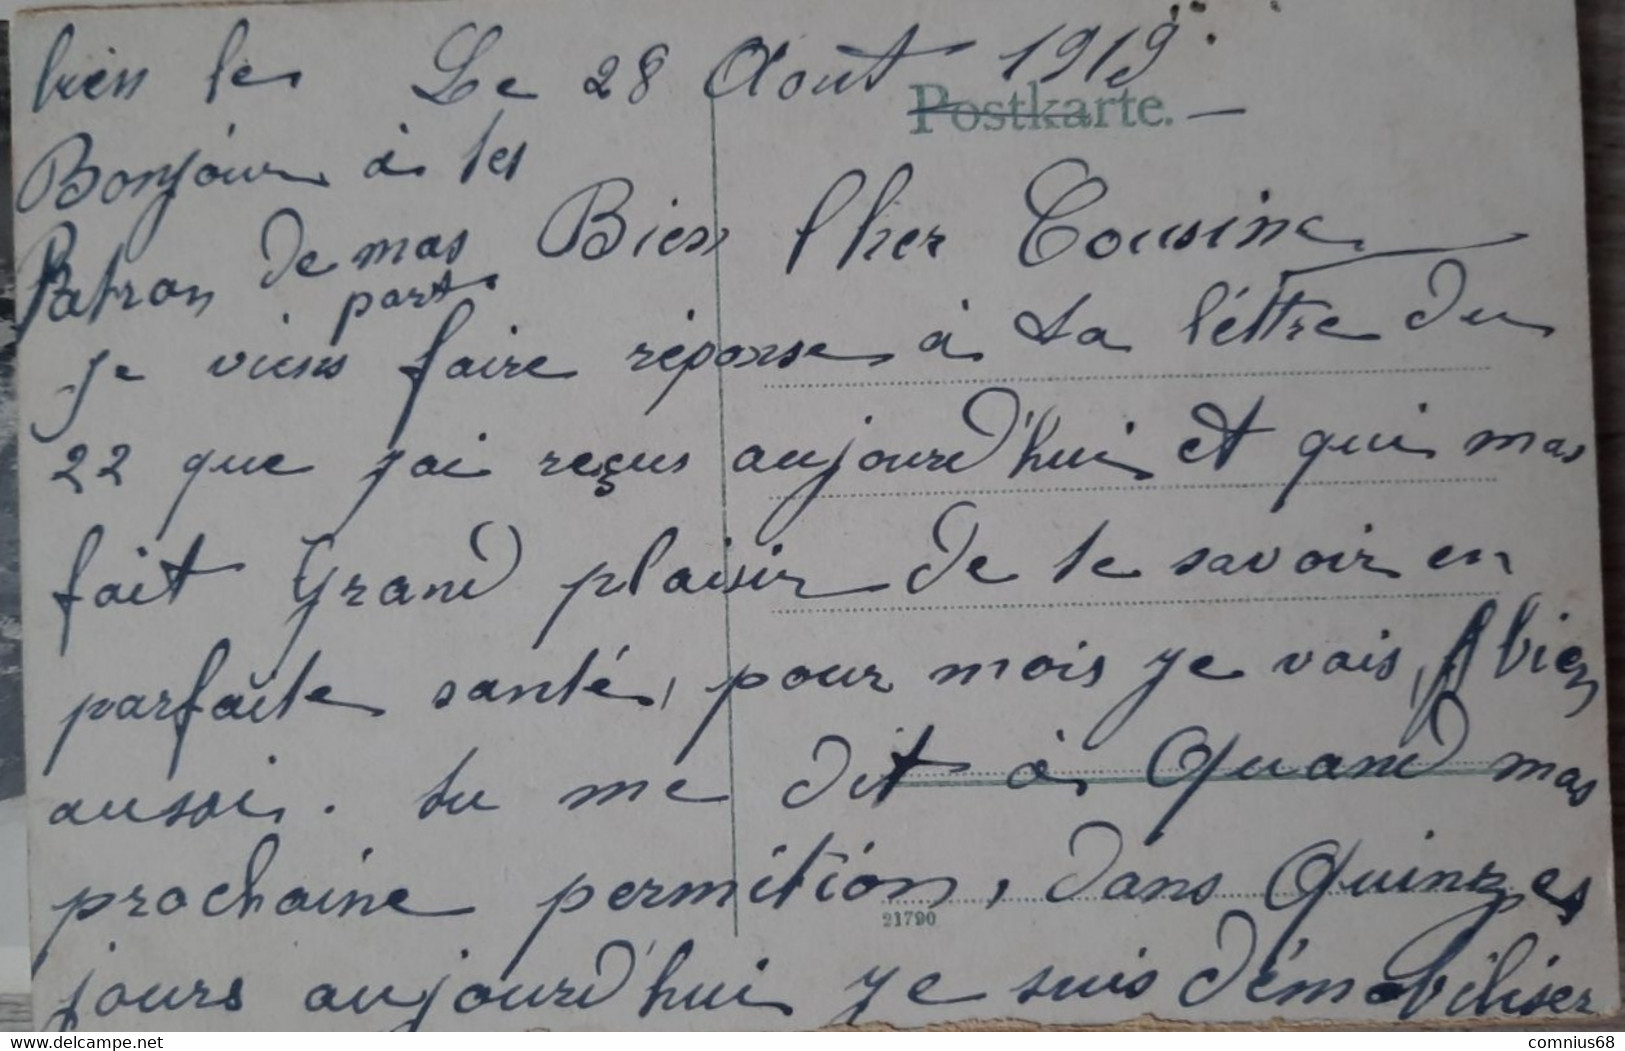 Le 28 Aout 1919.
Postkarte.
bien le
Bonjour à tes
Patron de mas
part.
Bien Cher Cousin
je viens faire réponse à ta léttre du
22 que jai reçus aujourd'hui et qui mas
fait Grand plaisir de te savoir en
parfaite santé, pour mois je vais, bien
aussi. tu me dit à Quand mas
prochaine permition, dans Quinzes
21790
jours aujourd'hui je suis démobiliser
comnius68
delcampe.net